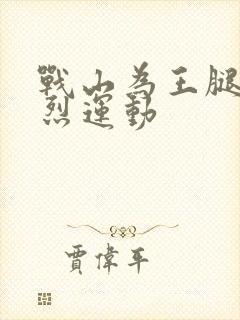 戰山為王腿
烈運動
賈偉平